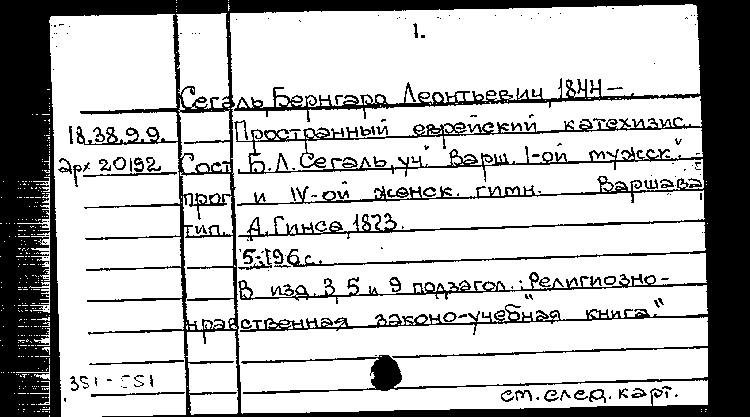 1.
Сегаль, Бернгард Леонтьевич, 1844 –
18.38.9.9. Пространный еврейский катехизис.
Арх 20192 Сост. Б.Л. Сегаль, уч. Варш. I-ой мужск.
прог. и IV-ой женск. гимн. Варшава
тип. А. Гинса, 1873.
5;196 с.
В изд. 3, 5 и 9 подзагол.: "Религиозно-
нравственная законо-учебная книга."
351-551
см. след. карт.